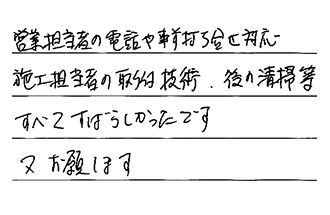 営業担当者の電話や事前打ち合せ対応
施工担当者の取付技術、後の清掃等
すべてすばらしかったです
又お願します